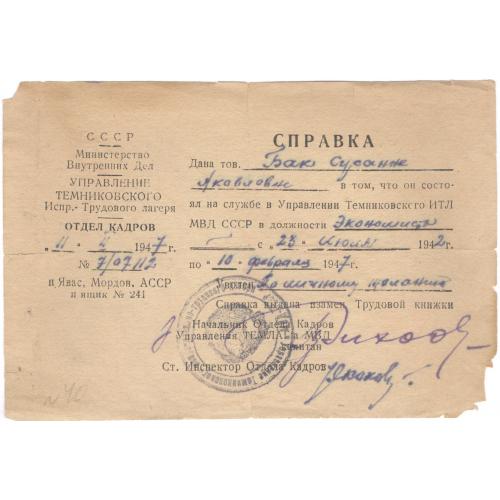 СССР
Министерство
Внутренних Дел
УПРАВЛЕНИЕ
ТЕМНИКОВСКОГО
Испр.-Трудового лагеря
ОТДЕЛ КАДРОВ
„11" 1947г.
№ 7/07112
п Явас, Мордов. АССР
п ящик № 241
СПРАВКА
Дана тов. Бак Сусанне
Яковлевне в том, что он состо-
ял на службе в Управлении Темниковского ИТЛ
МВД СССР в должности Экономиста
с „23" июля 1942г.
по „10" февраля 1947г.
Уволен По личному желанию
Справка выдана взамен Трудовой книжки
Начальник Отдела Кадров
Управления ТЕМЛАГа МВД
капитан
Ст. Инспектор Отдела Кадров